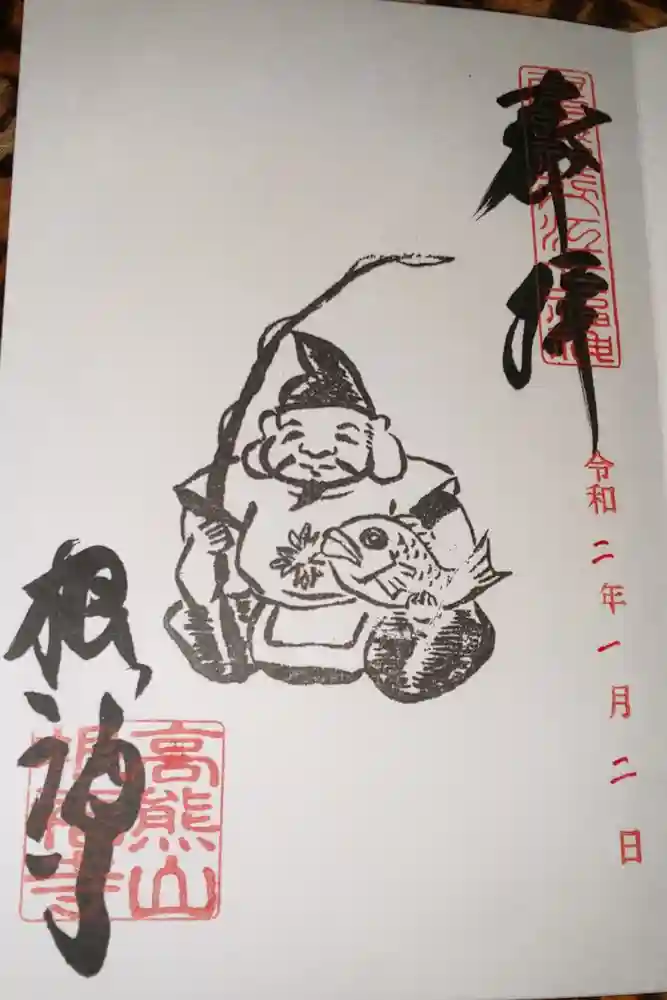 奉拝
令和二年一月二日
根神
高熊山